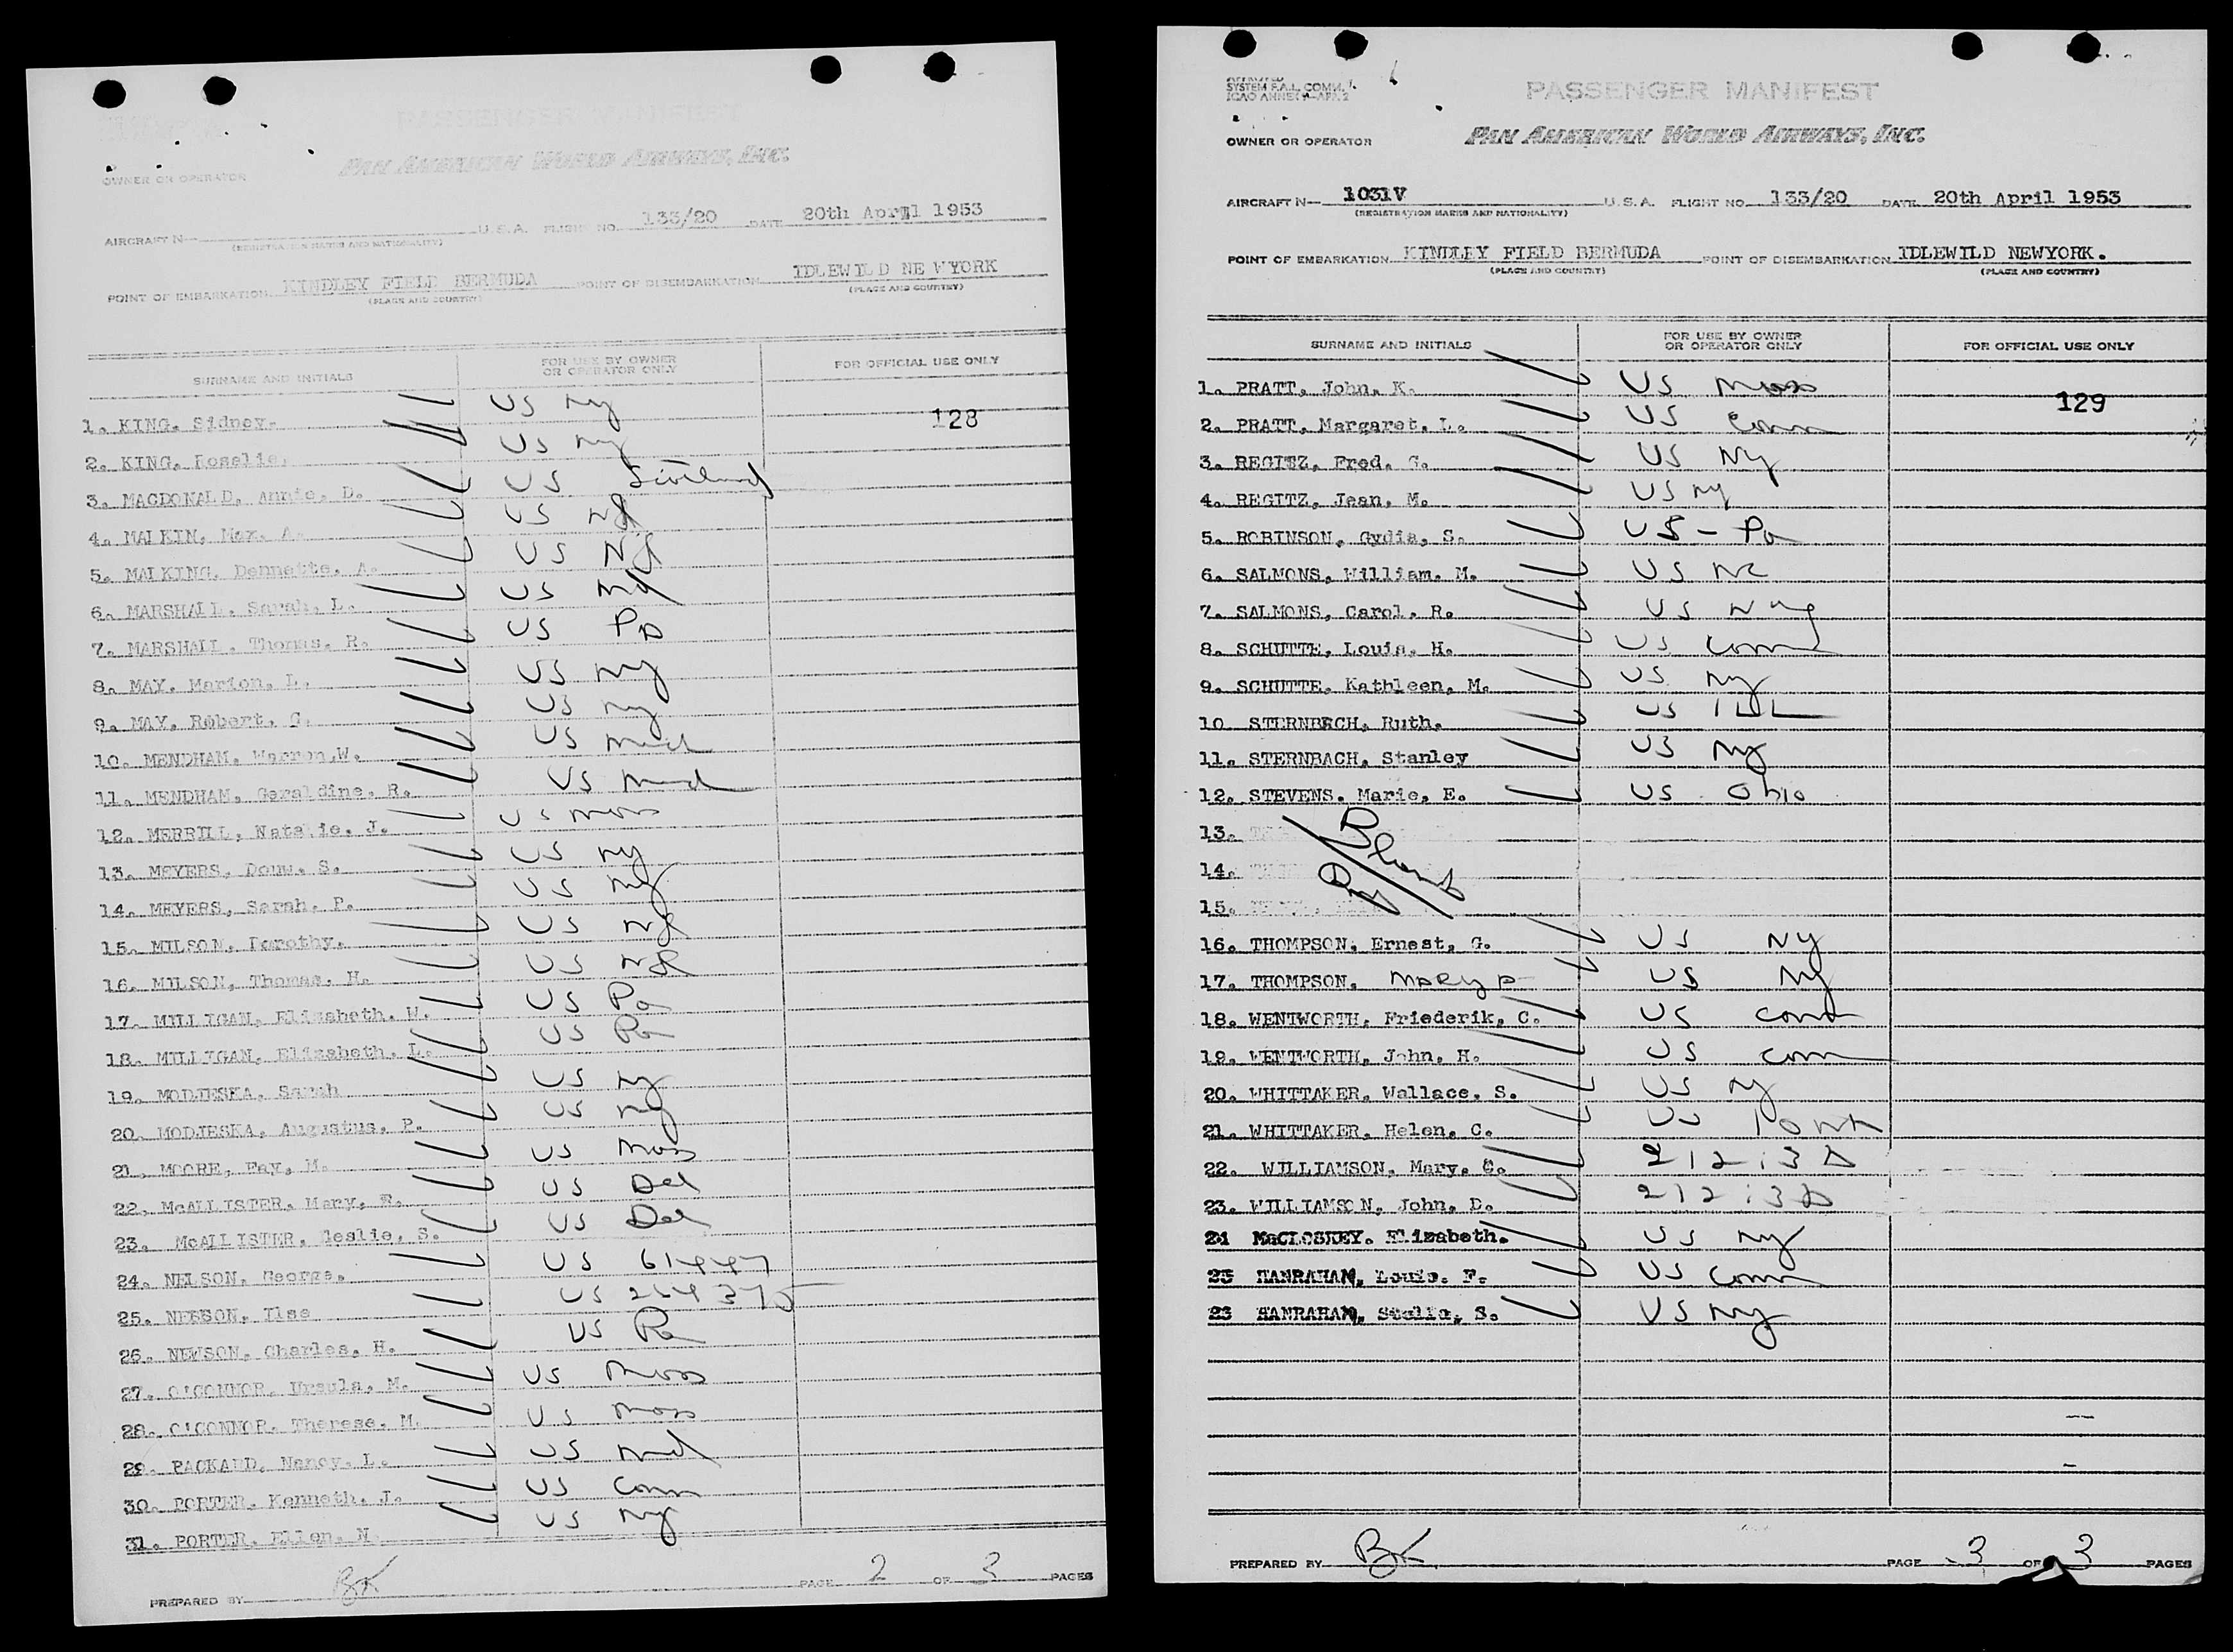 PASSENGER MANIFEST
PAN AMERICAN WORLD AIRWAYS, INC.
OWNER OR OPERATOR
AIRCRAFT N— U.S.A. FLIGHT NO. 133/20 DATE 20th April 1953
(REGISTRATION MARKS AND NATIONALITY)
POINT OF EMBARKATION KINDLEY FIELD BERMUDA POINT OF DISEMBARKATION IDLEWILD NEWYORK
(PLACE AND COUNTRY) (PLACE AND COUNTRY)
SURNAME AND INITIALS FOR USE BY OWNER OR OPERATOR ONLY FOR OFFICIAL USE ONLY
128
1. KING. Sidney. US Ny
2. KING. Roselie. US Ny
3. MACDONALD, Annie. D. US Scotland
4. MALKIN, Max. A. US NJ
5. MALKING. Dennette. A. US NJ
6. MARSHALL. Sarah. L. US Md
7. MARSHALL. Thomas. R. US Pa
8. MAY. Marion. L. US Ny
9. MAY. Robert. G. US Ny
10. MENDHAM. Warren.W. US Md
11. MENDHAM. Geraldine. R. US Md
12. MERRILL, Natalie. J. US Mass
13. MEYERS, Douw. S. US Ny
14. MEYERS, Sarah. P. US Ny
15. MILSON. Dorothy. US NJ
16. MILSON, Thomas. H. US NJ
17. MILLIGAN, Elizabeth. W. US Pa
18. MILLIGAN, Elizabeth. L. US Pa
19. MODJESKA, Sarah US Ny
20. MODJESKA, Augustus. P. US Ny
21. MOORE, Fay. M. US Mass
22. McALLISTER. Mary. E. US Del
23. McALLISTER, Leslie, S. US Del
24. NELSON, George. US 61447
25. NELSON, Ilse US 264375
26. NEWSON. Charles. H. US Pa
27. O'CONNOR. Ursula. M. US Mass
28. O'CONNOR. Therese. M. US Mass
29. PACKARD, Nancy. L. US Md
30. PORTER. Kenneth. J. US Conn
31. PORTER. Ellen. N. US Ny
PREPARED BY BK PAGE 2 OF 3 PAGES
SYSTEM F.A.L. COMM.
PASSENGER MANIFEST
OWNER OR OPERATOR PAN AMERICAN WORLD AIRWAYS, INC.
AIRCRAFT N— 1031V U.S.A. FLIGHT NO. 133/20 DATE 20th April 1953
(REGISTRATION MARKS AND NATIONALITY)
POINT OF EMBARKATION KINDLEY FIELD BERMUDA POINT OF DISEMBARKATION IDLEWILD NEWYORK.
(PLACE AND COUNTRY) (PLACE AND COUNTRY)
SURNAME AND INITIALS FOR USE BY OWNER OR OPERATOR ONLY FOR OFFICIAL USE ONLY
129
1. PRATT, John, K. US Mass
2. PRATT, Margaret. L. US Conn
3. REGITZ, Fred. G. US Ny
4. REGITZ, Jean, M. US Ny
5. ROBINSON, Gydia, S. US - Pa
6. SALMONS, William. M. US NC
7. SALMONS, Carol. R. US
8. SCHUTTE, Louis. H. US Conn
9. SCHUTTE. Kathleen, M. US Ny
10. STERNBACH, Ruth. US ILL
11. STERNBACH, Stanley US Ny
12. STEVENS. Marie, E. US Ohio
13.
14.
15.
16. THOMPSON, Ernest, G. US NY
17. THOMPSON, Mary P US Ny
18. WENTWORTH, Friederik, C. US Conn
19. WENTWORTH, John, H. US Conn
20. WHITTAKER, Wallace, S. US Ny
21. WHITTAKER, Helen, C. US
22. WILLIAMSON, Mary. C. 212:3D
23. WILLIAMSON, John, D. 212:3D
24 MaCLOSKEY. Elizabeth. US Ny
25 HANRAHAN, Louis. F. US Conn
23 HANRAHAN, Stella, S. US Ny
PREPARED BY BK PAGE 3 OF 3 PAGES